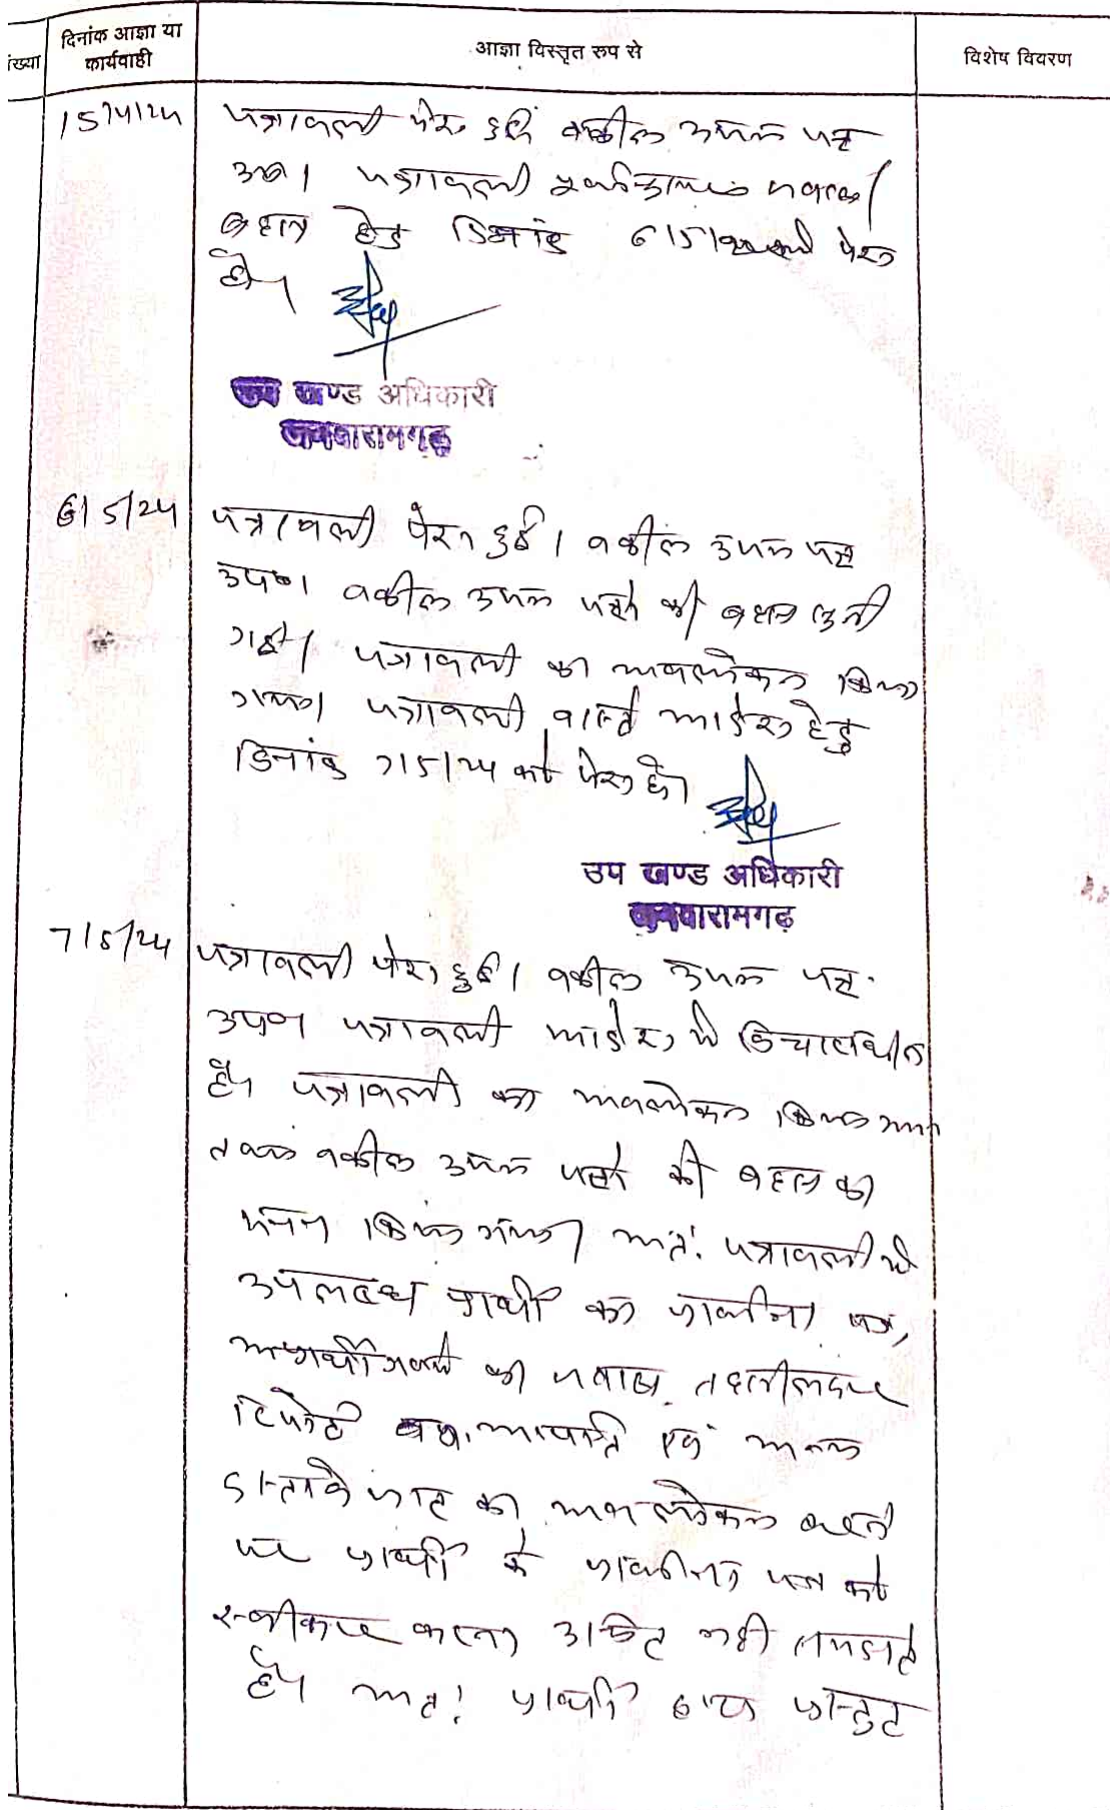 ंख्या
दिनांक आज्ञा या
कार्यवाही
आज्ञा विस्तृत रुप से
विशेष विवरण
15/4/24
पत्रावली पेश हुई वकील उभय पक्ष
उप। पत्रावली
बहस हेतु दिनांक 6/5/ को पेश
हो।
उप खण्ड अधिकारी
जमवारामगढ़
6/5/24
पत्रावली पेश हुई। वकील उभय पक्ष
उप०। वकील उभय पक्षो की बहस सुनी
गई। पत्रावली का अवलोकन किया
गया। पत्रावली वास्ते आदेश हेतु
दिनांक 7/5/24 को पेश हो।
उप खण्ड अधिकारी
जमवारामगढ़
7/5/24
पत्रावली पेश हुई। वकील उभय पक्ष
उप० पत्रावली आदेश मे विचाराधीन
है। पत्रावली का अवलोकन किया गया
तथा वकील उभय पक्षो की बहस का
मनन किया गया। अतः पत्रावली मे
उपलब्ध प्रार्थी का प्रार्थना पत्र,
अप्रार्थीगणो का जवाब, तहसीलदार
रिपोर्ट आपत्ति एवं अन्य
दस्तावेजात का अवलोकन करने
पर प्रार्थी के प्रार्थना पत्र को
स्वीकार करना उचित नही समझते
है। अतः प्रार्थी द्वारा प्रस्तुत